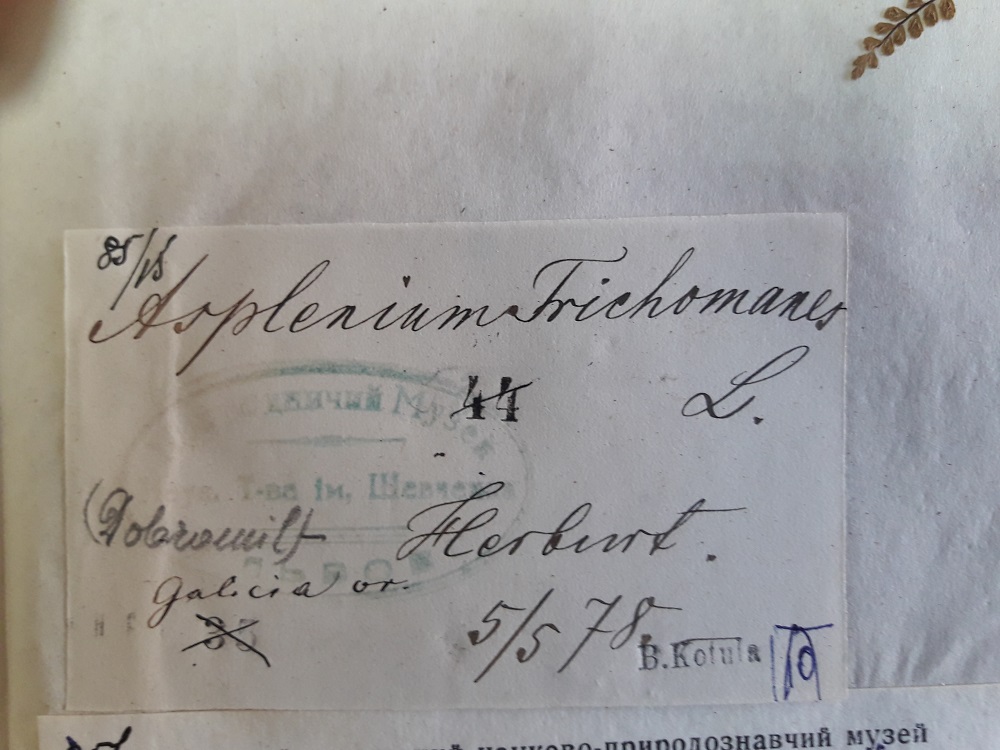 85/15
Asplenium Trichomanes
44 L.
Музей
Т-ва ім. Шевченка
(Dobromil) Herburt.
Galicia or.
5/5 78.
B. Kotula
науково-природознавчий музей